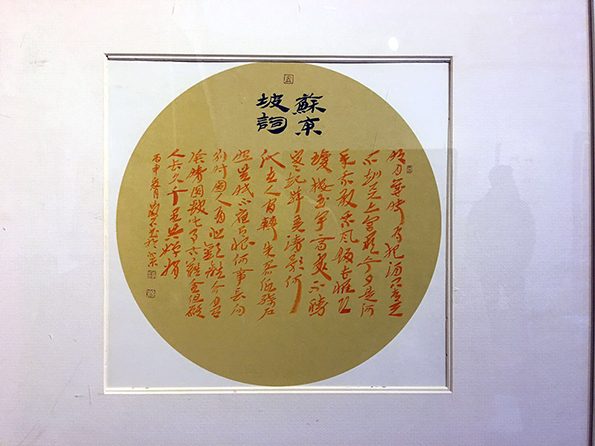 蘇東
坡詞
明月幾時有把酒问青天
不知天上宮闕今夕是何
年我欲乘风歸去恐
瓊樓玉宇高處不勝
寒起舞弄清影何
似在人間轉朱閣低綺户
照無眠不應有恨何事長向
别時圓人有悲歡離合月有
陰晴圆缺此事古難全但願
人長久千里共嬋娟
丙申